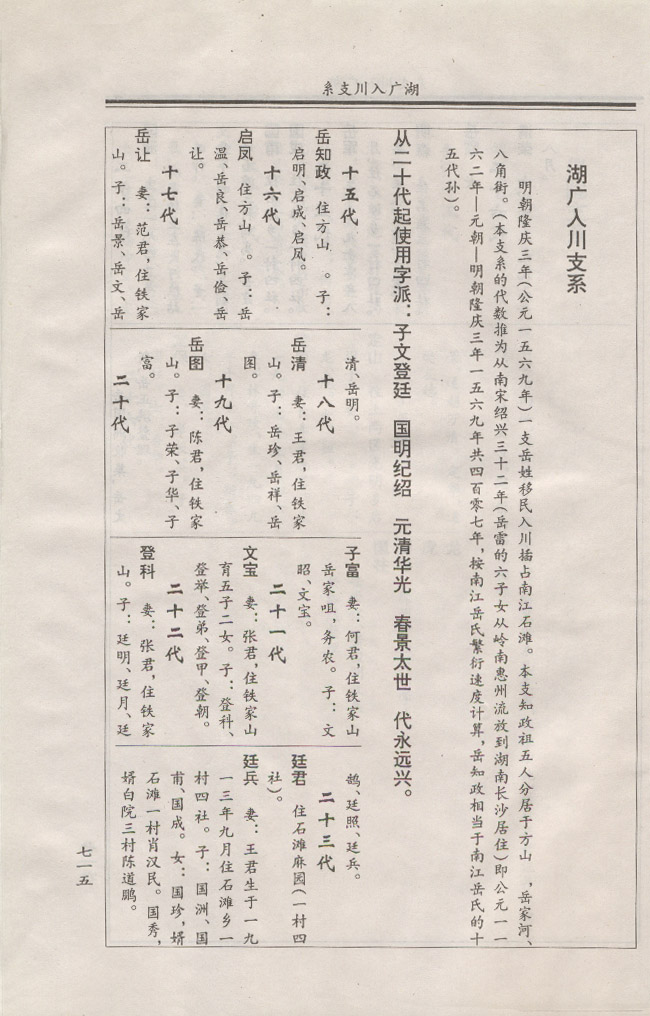 湖广入川支系
湖广入川支系
明朝隆庆三年(公元一五六九年)一支岳姓移民入川插占南江石滩。本支知政祖五人分居于方山 ,岳家河、
八角街。(本支系的代数推为从南宋绍兴三十二年(岳雷的六子女从岭南惠州流放到湖南长沙居住)即公元一一
六二年—元朝—明朝隆庆三年一五六九年共四百零七年,按南江岳氏繁衍速度计算,岳知政相当于南江岳氏的十
五代孙)。
从二十代起使用字派:子文登廷 国明纪绍 元清华光 春景太世 代永远兴。
十五代
岳知政 住方山 。子:
启明、启成、启凤。
十六代
启凤 住方山 。子:岳
温、岳良、岳恭、岳俭、岳
让。
十七代
岳让 妻:范君,住铁家
山。子:岳景、岳文、岳
清、岳明。
十八代
岳清 妻:王君,住铁家
山。子:岳珍、岳祥、岳
图。
十九代
岳图 妻:陈君,住铁家
山。子:子荣、子华、子
富。
二十代
子富 妻:何君,住铁家山
岳家咀,务农。子:文
昭、文宝。
二十一代
文宝 妻:张君,住铁家山
育五子二女。子:登科、
登举、登弟、登甲、登朝。
二十二代
登科 妻:张君,住铁家
山。子:廷明、廷月、廷
鹄、廷照、廷兵。
二十三代
廷君 住石滩麻园(一村四
社)。
廷兵 妻:王君生于一九
一三年九月住石滩乡一
村四社。子:国洲、国
甫、国成。女:国珍,婿
石滩一村肖汉民。国秀,
婿白院三村陈道鹏。
七一五